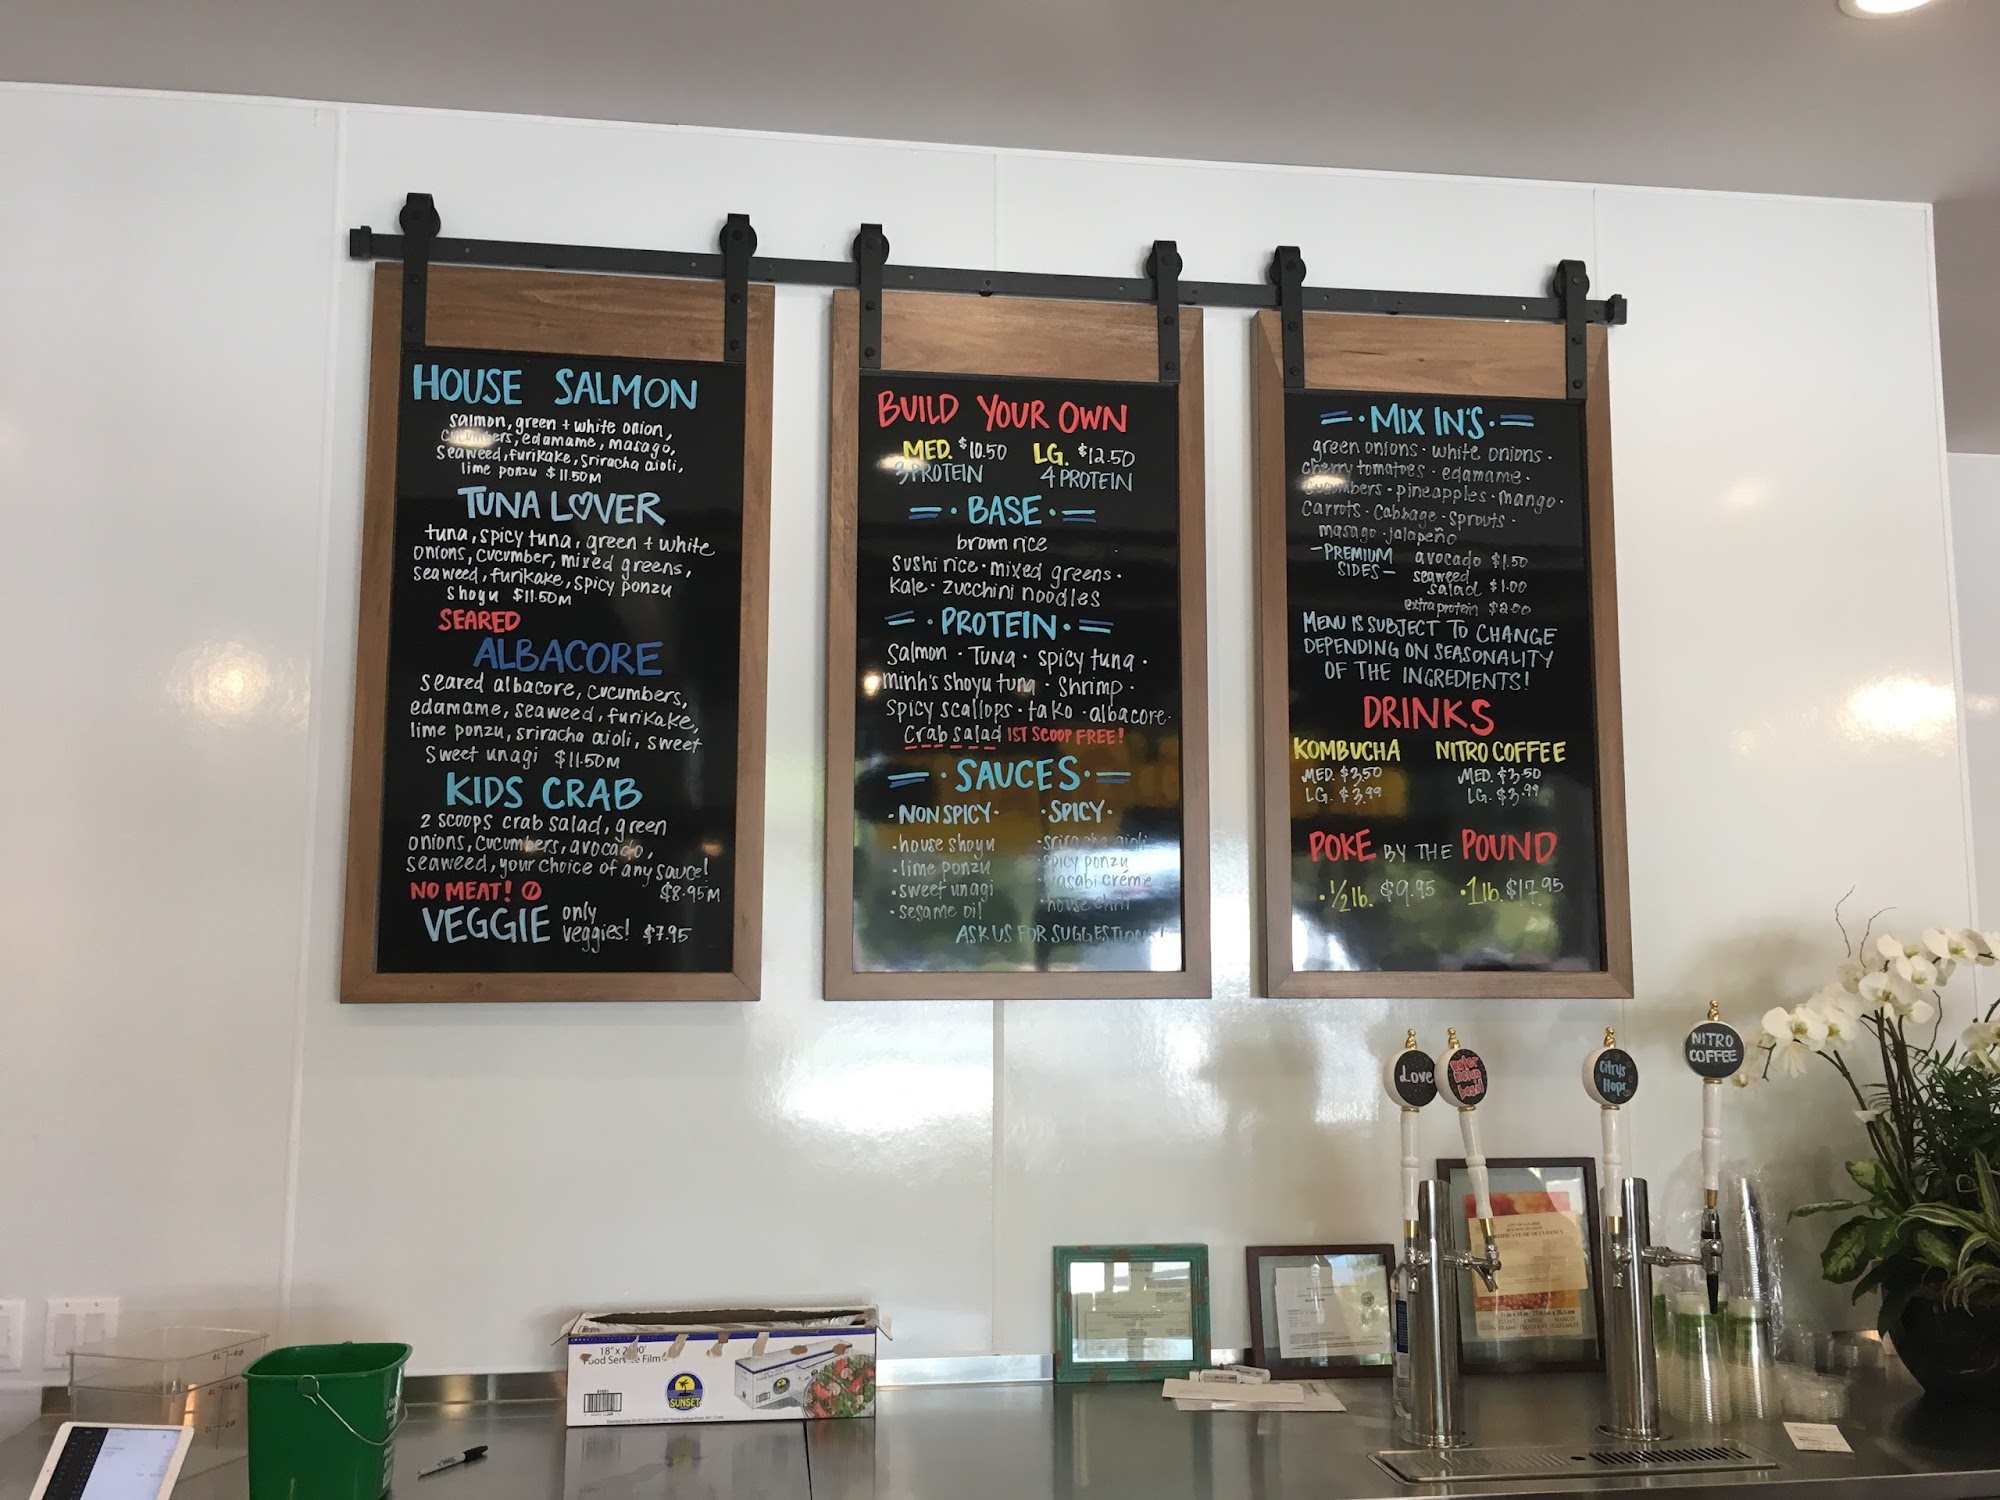 HOUSE SALMON
salmon, green + white onion,
cucumbers, edamame, masago,
seaweed, furikake, sriracha aioli,
lime ponzu $11.50M
TUNA LOVER
tuna, spicy tuna, green + white
onions, cucumber, mixed greens,
seaweed, furikake, spicy ponzu
shoyu $11.50M
SEARED
ALBACORE
seared albacore, cucumbers,
edamame, seaweed, furikake,
lime ponzu, sriracha aioli, sweet
sweet unagi $11.50M
KIDS CRAB
2 scoops crab salad, green
onions, cucumbers, avocado,
seaweed, your choice of any sauce!
NO MEAT! $8.95M
VEGGIE only veggies! $7.95
BUILD YOUR OWN
MED. $10.50 LG. $12.50
3 PROTEIN 4 PROTEIN
BASE
brown rice
sushi rice · mixed greens ·
kale · zucchini noodles
PROTEIN
salmon · Tuna · spicy tuna ·
minh's shoyu tuna · shrimp ·
spicy scallops · tako · albacore ·
crab salad 1ST SCOOP FREE!
SAUCES
· NON SPICY · · SPICY ·
· house shoyu · sriracha aioli
· lime ponzu · spicy ponzu
· sweet unagi · wasabi créme
· sesame oil · house chili
ASK US FOR SUGGESTIONS!
· MIX IN'S ·
green onions · white onions ·
cherry tomatoes · edamame ·
cucumbers · pineapples · mango ·
carrots · cabbage · sprouts ·
masago · jalapeño
- PREMIUM SIDES - avocado $1.50
seaweed salad $1.00
extra protein $2.00
MENU IS SUBJECT TO CHANGE
DEPENDING ON SEASONALITY
OF THE INGREDIENTS!
DRINKS
KOMBUCHA NITRO COFFEE
MED. $3.50 MED. $3.50
LG. $3.99 LG. $3.99
POKE BY THE POUND
· 1/2 lb. $9.95 · 1 lb. $17.95
NITRO
COFFEE
Love
water
melon
basil
Citrus
Hops
CERTIFICATE OF OCCUPANCY
Food Service Film
SUNSET